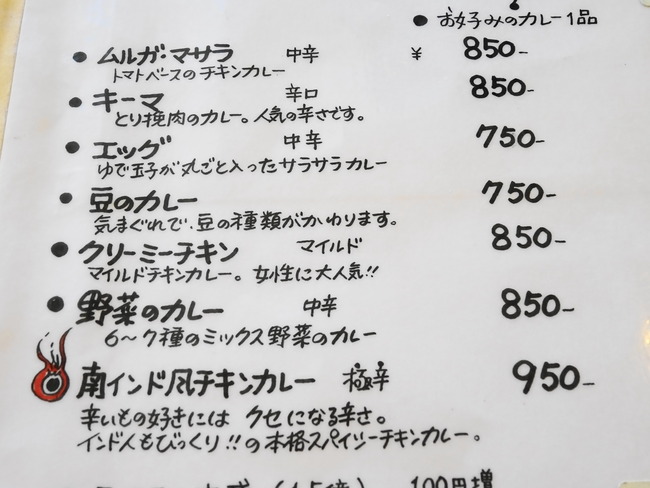 ● お好みのカレー1品
● ムルガ・マサラ 中辛 ¥ 850-
トマトベースのチキンカレー
● キーマ 辛口 850-
とり挽肉のカレー。人気の辛さです。
● エッグ 中辛 750-
ゆで玉子が丸ごと入ったサラサラカレー
● 豆のカレー 750-
気まぐれで、豆の種類がかわります。
● クリーミーチキン マイルド 850-
マイルドチキンカレー。女性に大人気!!
● 野菜のカレー 中辛 850-
6～7種のミックス野菜のカレー
南インド風チキンカレー 極辛 950-
辛いもの好きには クセになる辛さ。
インド人もびっくり!!の本格スパイシーチキンカレー。
(1.5倍) 100円増